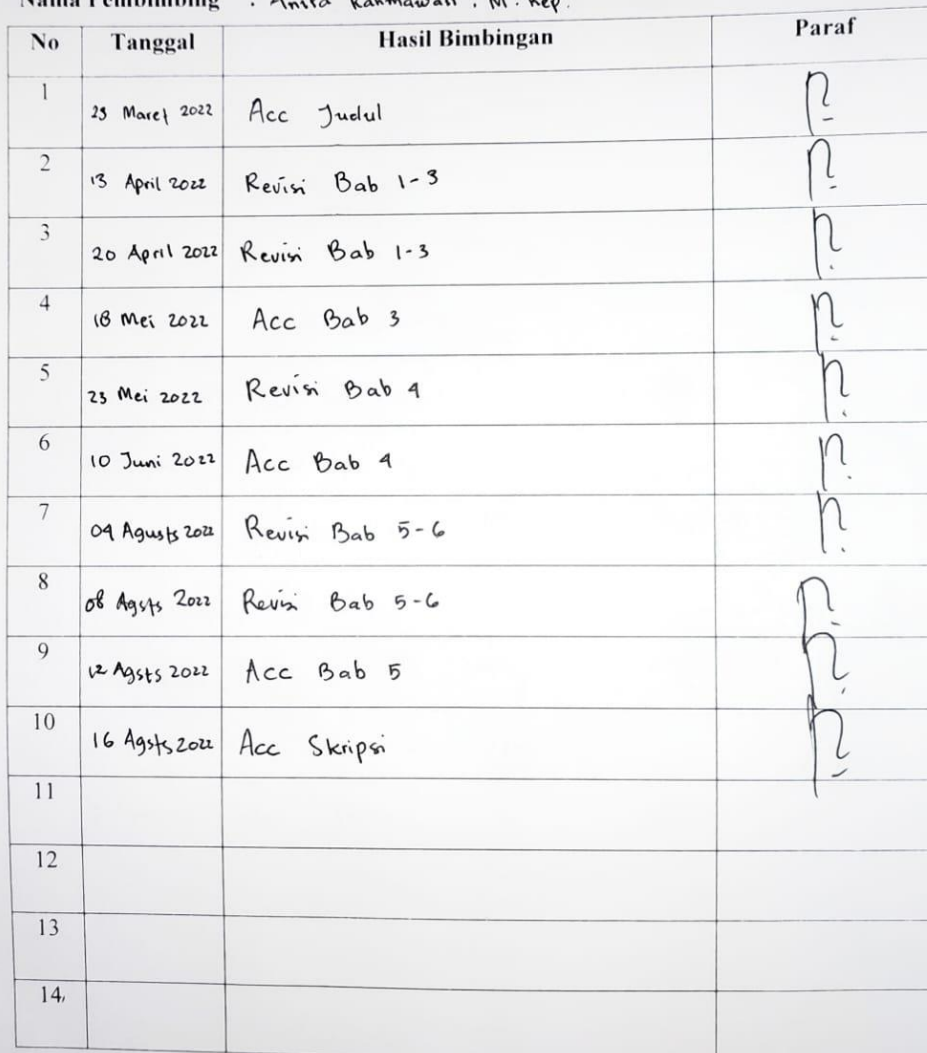 Nama Pembimbing : Anita Rahmawati . M. Kep.
No Tanggal Hasil Bimbingan Paraf
1 23 Maret 2022 Acc Judul
2 13 April 2022 Revisi Bab 1-3
3 20 April 2022 Revisi Bab 1-3
4 18 Mei 2022 Acc Bab 3
5 23 Mei 2022 Revisi Bab 4
6 10 Juni 2022 Acc Bab 4
7 04 Agusts 2022 Revisi Bab 5-6
8 08 Agsts 2022 Revisi Bab 5-6
9 12 Agsts 2022 Acc Bab 5
10 16 Agsts 2022 Acc Skripsi
11
12
13
14,